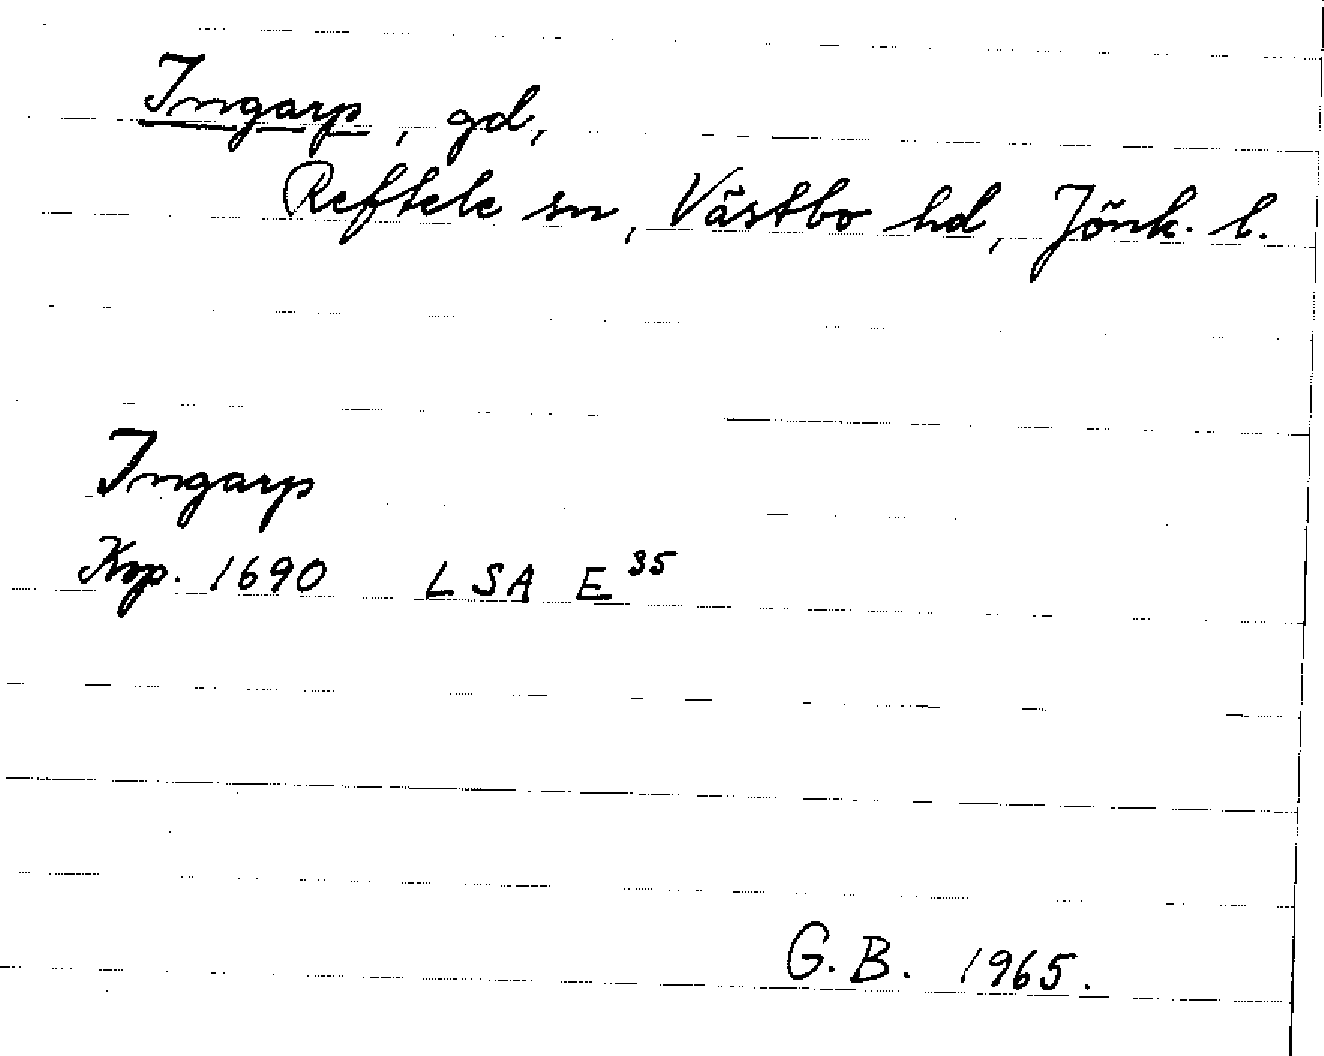 Ingarp, gd,
Reftele sn, Västbo hd, Jönk. l.
Ingarp
Krp. 1690 LSA E 35
G.B. 1965.